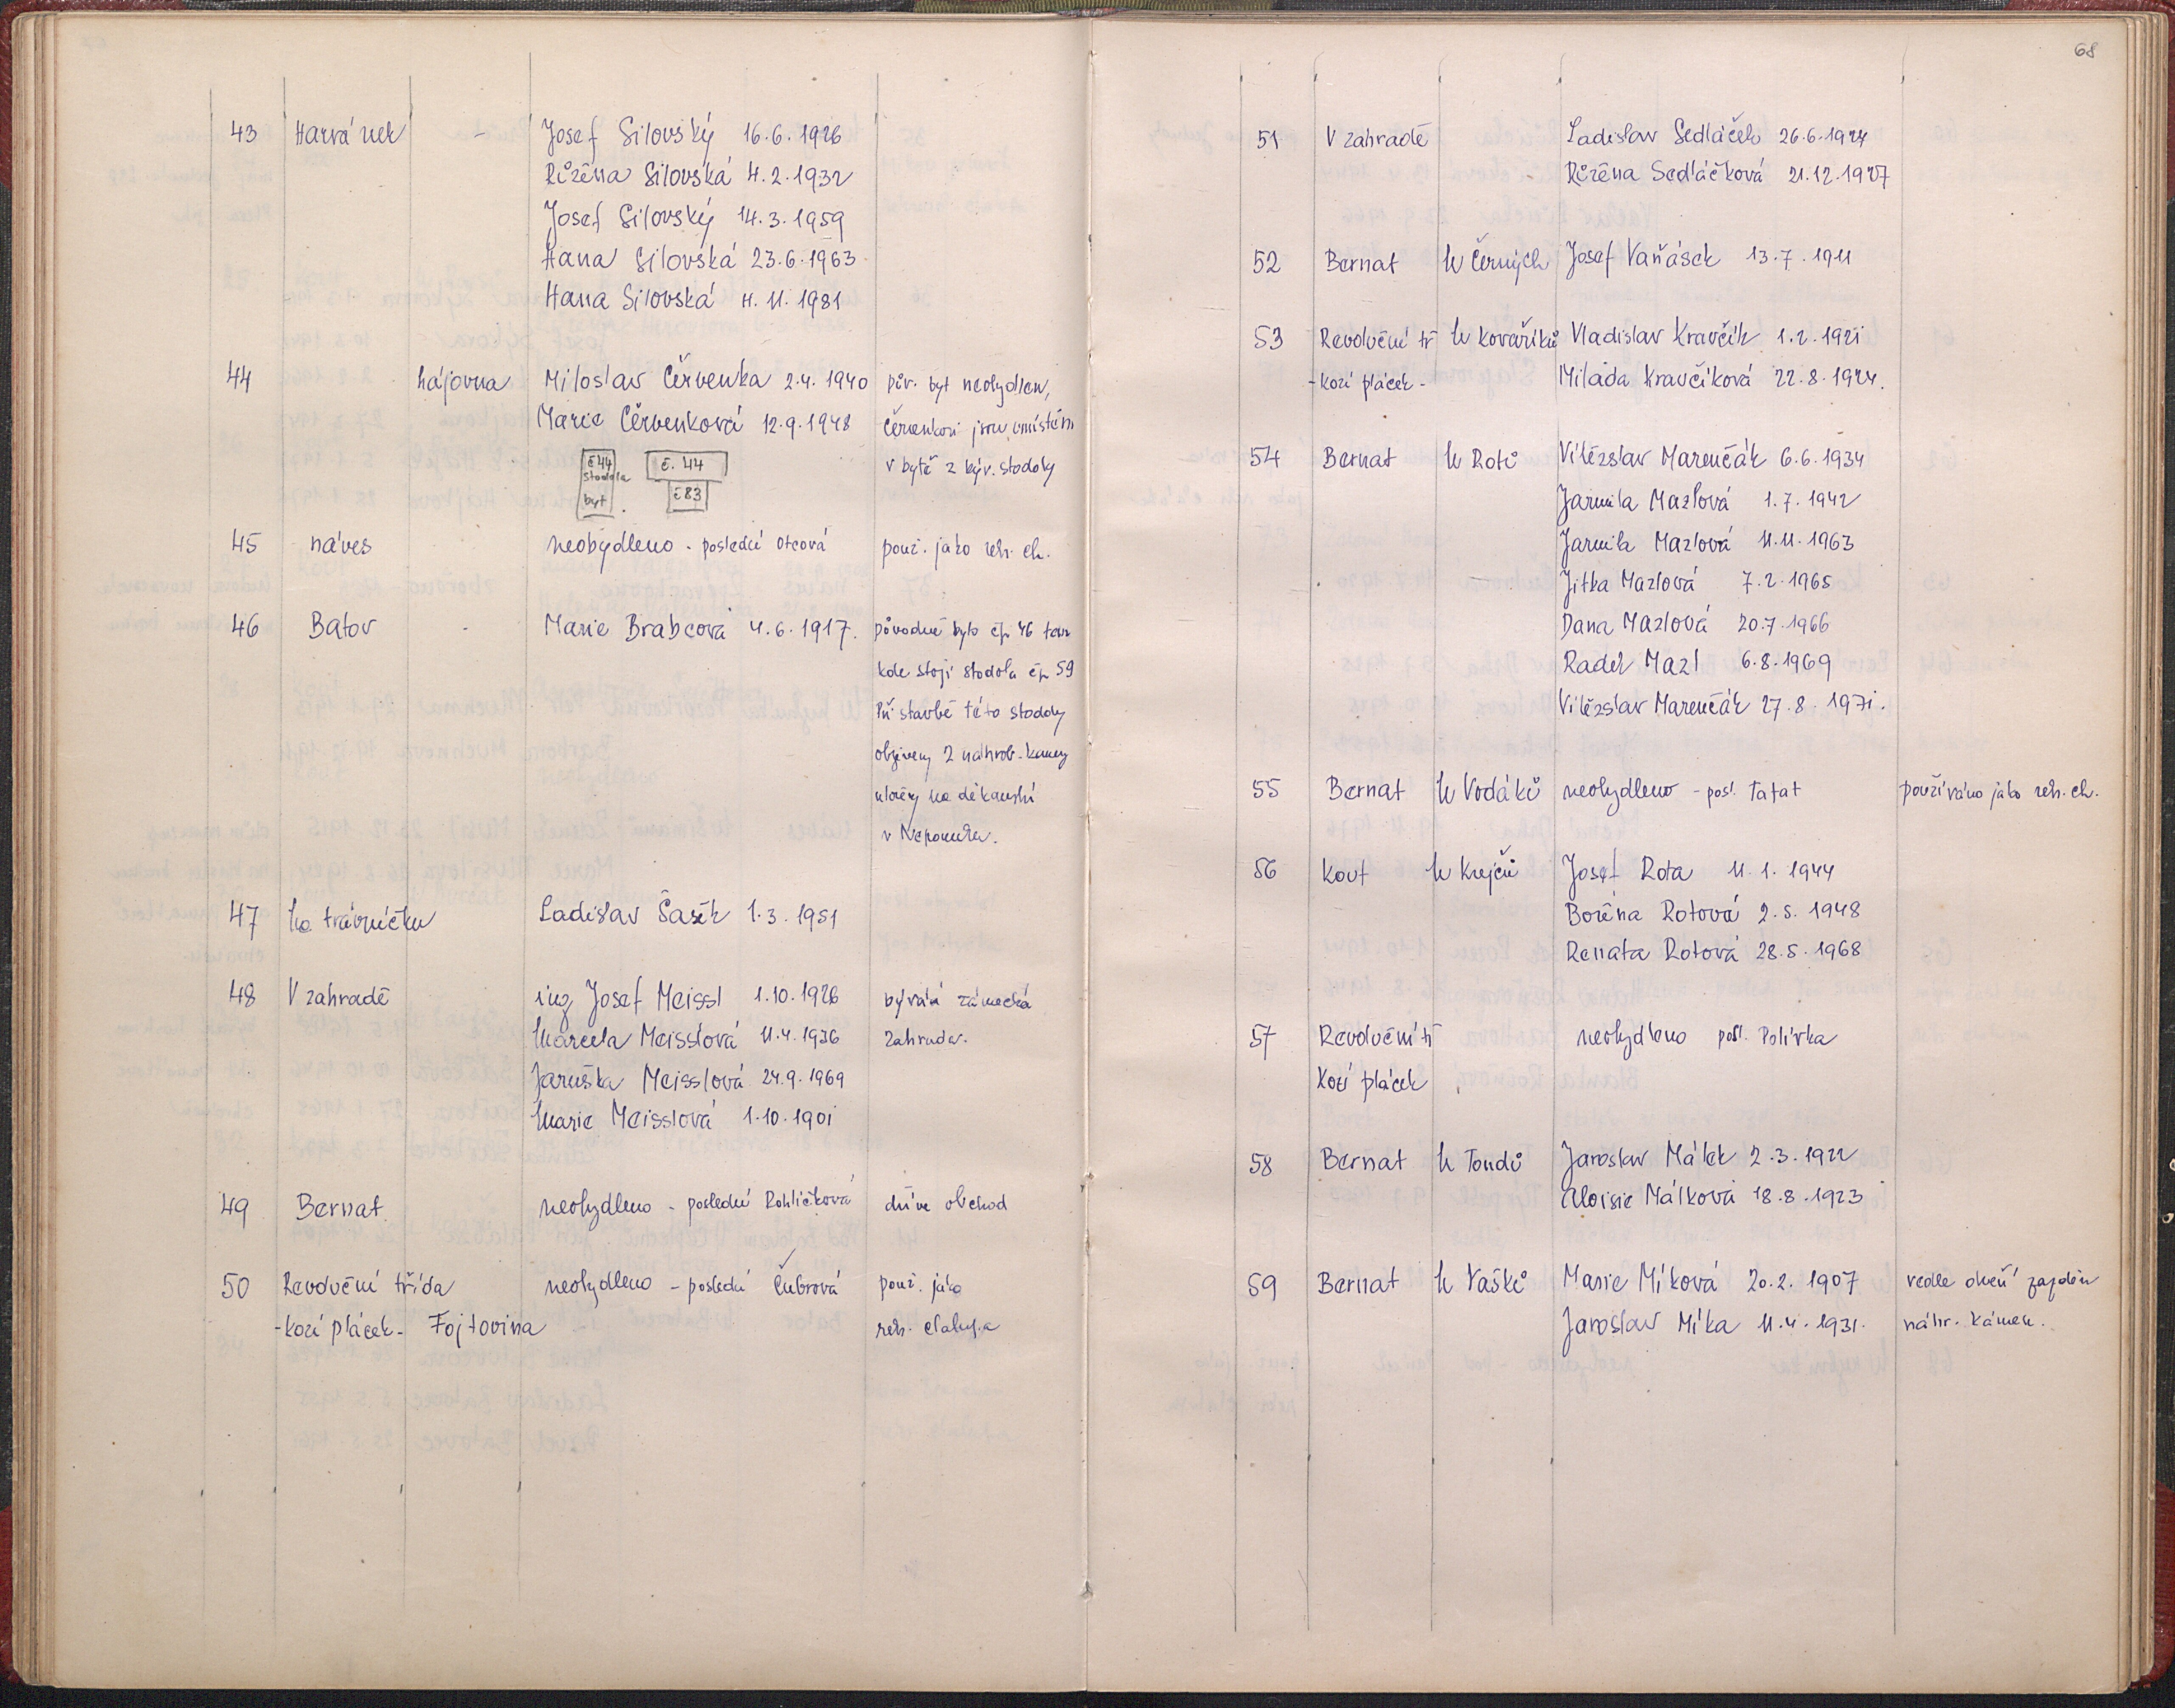 43 Harvánek - Josef Silovský 16.6.1926
Růžena Silovská 4.2.1932
Josef Silovský 14.3.1959
Hana Silovská 23.6.1963
Hana Silovská 4.11.1981
44 hájovna Miloslav Červenka 2.4.1940 pův. byt neobydlen,
Marie Červenková 12.9.1948 Červenkovi jsou umístěni
č44 stodola byt č. 44 č83 v bytě z býv. stodoly
45 náves neobydleno - poslední Otcová použ. jako rekr. ch.
46 Batov - Marie Brabcová 4.6.1917. původně bylo čp 46 tam
kde stojí stodola čp 59
Při stavbě této stodoly
objeveny 2 náhrob. kameny
uloženy na děkanství
v Nepomuku.
47 Na trávníčku Ladislav Šašek 1.3.1951
48 V zahradě ing Josef Meissl 1.10.1926 bývalá zámecká
Marcela Meisslová 11.4.1936 zahrada.
Jaruška Meisslová 24.9.1969
Marie Meisslová 1.10.1901
49 Bernat neobydleno - poslední Rohličková dříve obchod
50 Revoluční třída neobydleno - poslední Čubrová použ. jako
-kozí plácek- Fojtovina rekr. chalupa
68
51 V zahradě Ladislav Sedláček 26.6.1924
Růžena Sedláčková 21.12.1927
52 Bernat U Černých Josef Vaňásek 13.7.1911
53 Revoluční tř U Kovaříků Vladislav Kravčík 1.2.1921
-kozí plácek- Milada Kravčíková 22.8.1924.
54 Bernat U Rotů Vítězslav Marenčák 6.6.1934
Jarmila Mazlová 1.7.1942
Jarmila Mazlová 11.11.1963
Jitka Mazlová 7.2.1965
Dana Mazlová 20.7.1966
Radek Mazl 6.8.1969
Vítězslav Marenčák 27.8.1971.
55 Bernat U Vodáků neobydleno - posl. Tafat používáno jako rekr. ch.
56 Kout U Krejčů Josef Rota 11.1.1944
Božena Rotová 2.5.1948
Renata Rotová 28.5.1968
57 Revoluční tř neobydleno posl. Polívka
Kozí plácek
58 Bernat U Tondů Jaroslav Málek 2.3.1922
Aloisie Málková 18.8.1923
59 Bernat U Vašků Marie Míková 20.2.1907 vedle oken zazděn
Jaroslav Míka 11.4.1931. náhr. kámen.